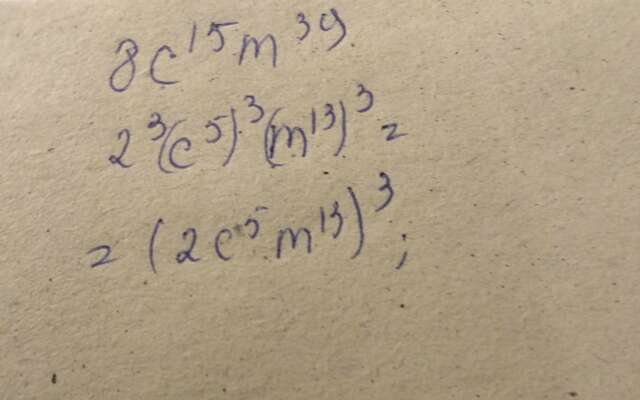 8c¹⁵m³⁹
2³(c⁵)³(m¹³)³=
=(2c⁵m¹³)³;